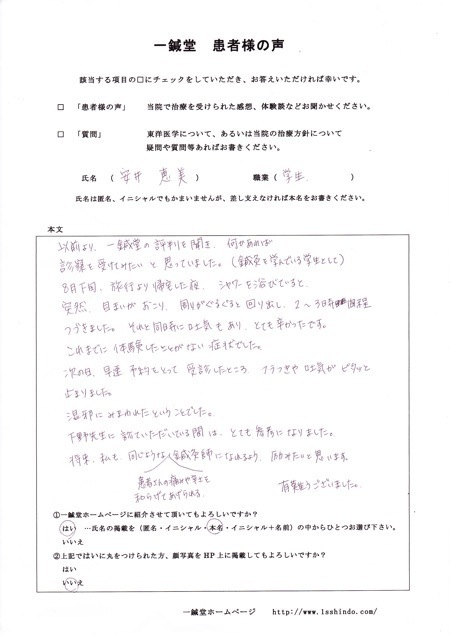 一鍼堂　患者様の声
該当する項目の□にチェックをしていただき、お答えいただければ幸いです。
□　「患者様の声」　当院で治療を受けられた感想、体験談などお聞かせください。
□　「質問」　東洋医学について、あるいは当院の治療方針について
疑問や質問等あればお書きください。
氏名　（　安井　恵美　）　職業（　学生　）
氏名は匿名、イニシャルでもかまいませんが、差し支えなければ本名をお書きください。
本文
以前より、一鍼堂の評判を聞き、何かあれば
診察を受けてみたいと思っていました。（鍼灸を学んでいる学生として）
8月下旬、旅行より帰宅した夜、シャワーを浴びていると、
突然、目まいがおこり、周りがぐるぐると回り出し、2～3時間程
つづきました。それと同時に吐気もあり、とても辛かったです。
これまでに体験したことがない症状でした。
次の日、早速予約をとって受診したところ、フラつきや吐気がピタッと
止まりました。
湿邪にみまわれたということでした。
下野先生に診ていただいている間は、とても参考になりました。
将来、私も、同じような鍼灸師になれるよう、励みたいと思います。
患者さんの痛みや辛さを
和らげてあげられる
有難うございました。
①一鍼堂ホームページに紹介させて頂いてもよろしいですか？
はい　…氏名の掲載を（匿名・イニシャル・本名・イニシャル＋名前）の中からひとつお選び下さい。
いいえ
②上記ではいに丸をつけられた方、顔写真をHP上に掲載してもよろしいですか？
はい
いいえ
一鍼堂ホームページ　http://www.1sshindo.com/